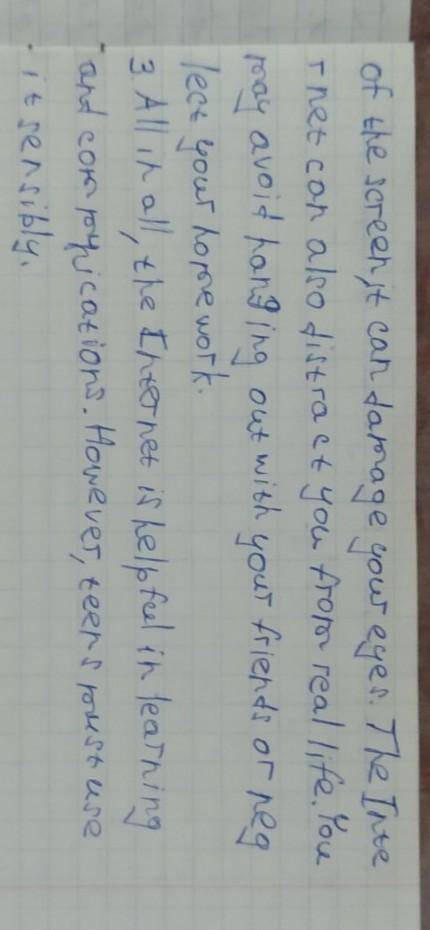 of the screen, it can damage your eyes. The Inte
rnet can also distract you from real life. You
may avoid hanging out with your friends or neg
lect your homework.
3 All in all, the Internet is helpful in learning
and communications. However, teens must use
it sensibly.